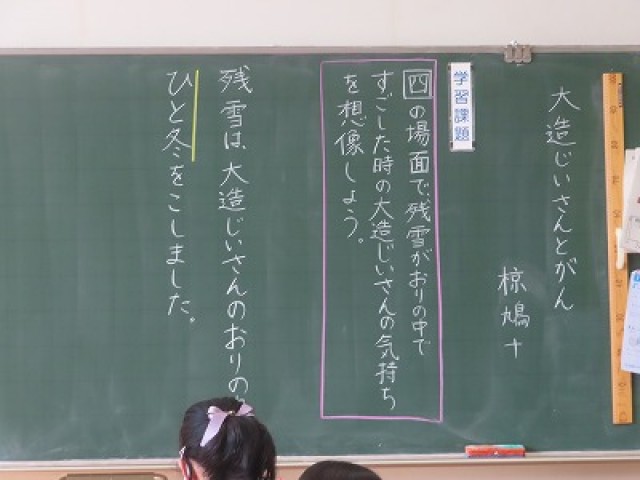 大造じいさんとがん
椋鳩十
学習課題
四の場面で、残雪がおりの中で
すごした時の大造じいさんの気持ち
を想像しょう。
残雪は、大造じいさんのおりの
ひと冬をこしました。